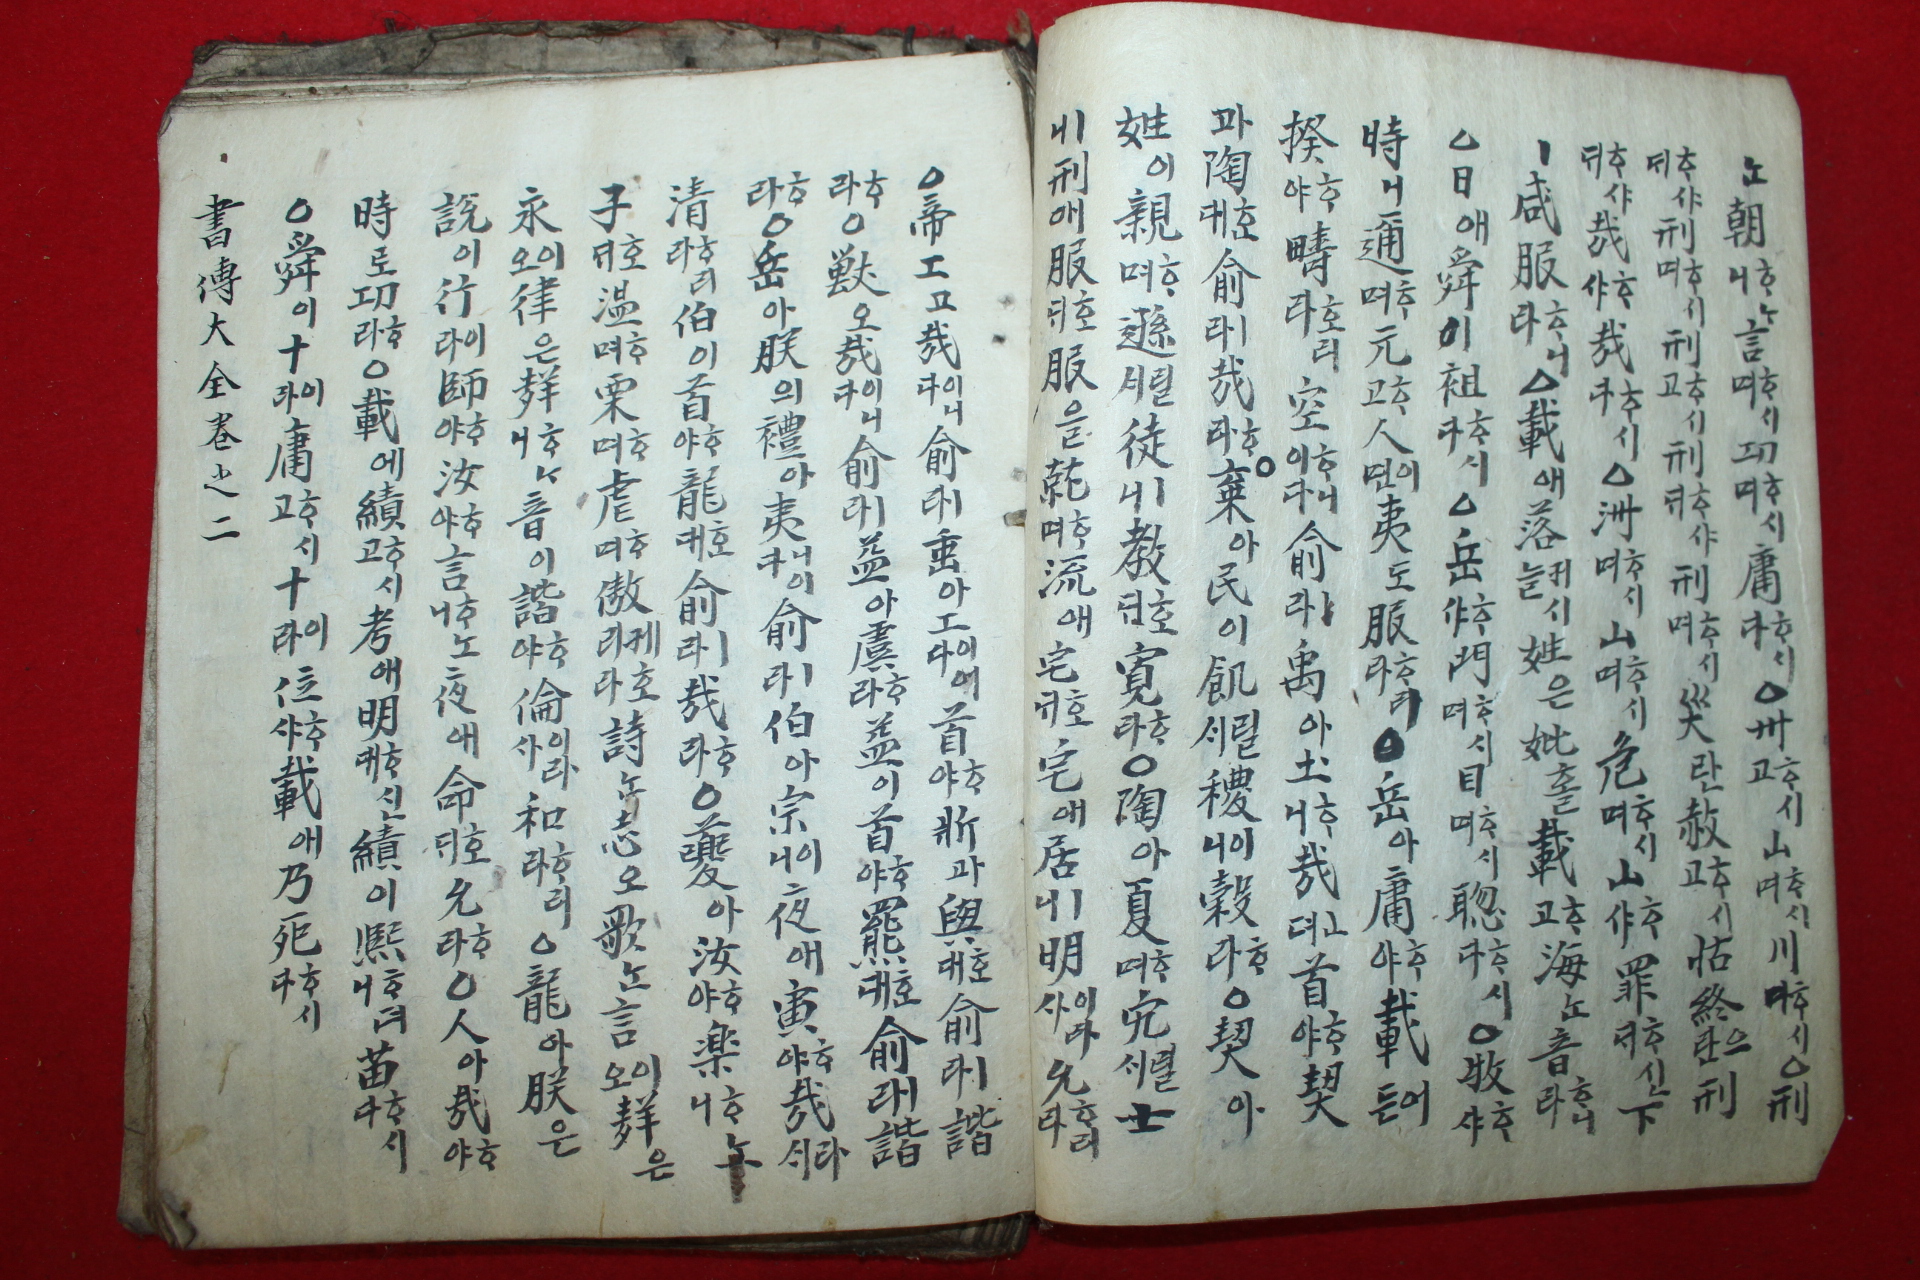 노朝ᄒᆞ노니言ᄒᆞ시며功ᄒᆞ시며庸ᄒᆞ시다○卅ᄒᆞ시고山ᄒᆞ시며川ᄒᆞ시다○刑
ᄒᆞ샤ᄃᆡ刑ᄒᆞ시며刑ᄒᆞ시고刑ᄒᆞ샤ᄃᆡ刑ᄒᆞ시며災란赦ᄒᆞ시고怙終으란刑
ᄒᆞ샤ᄃᆡ哉ᄒᆞ샤哉ᄒᆞ시다△洲ᄒᆞ시며山ᄒᆞ시며危ᄒᆞ시며山ᄒᆞ샤罪ᄒᆞ신ᄃᆡ下
ㅣ咸服ᄒᆞ니라△載애落커시늘姓은妣홀載ᄒᆞ고海노音ᄒᆞ니라
△日애舜이祖ᄒᆞ시다△岳ᄒᆞ야門ᄒᆞ시며目ᄒᆞ시며聰ᄒᆞ시다○牧ᄒᆞ샤
時니邇ᄒᆞ며元ᄒᆞ고人이면夷도服ᄒᆞ리라○岳아庸ᄒᆞ야載어든
揆ᄒᆞ야疇호리라空ᄒᆞ니이다俞라ㅣ禹아土ᄒᆞ니哉고뎌首ᄒᆞ야契
과陶호대俞라ㅣ哉ᄒᆞ라○棄아民이飢릴시稷이니穀ᄒᆞ라○契아
姓이親ᄒᆞ며遜릴시徒ㅣ니教호ᄃᆡ寬ᄒᆞ라○陶아夏ᄒᆞ며宄릴시士
ㅣ니刑애服호ᄃᆡ服을란就ᄒᆞ며流애宅호ᄃᆡ宅애居ㅣ니明이라사允ᄒᆞ리라
○帝工고哉이니다俞라ㅣ垂아工이어다首ᄒᆞ야斨과與호대俞라ㅣ諧
ᄒᆞ라○獸오哉이니다俞라ㅣ益아虞ᄒᆞ라益이首ᄒᆞ야羆호대俞라ㅣ諧
ᄒᆞ라○岳아朕의禮아夷니이다俞라ㅣ伯아宗이니夜애寅ᄒᆞ야哉라셔
清ᄒᆞ리라伯이首ᄒᆞ야龍호대俞라ㅣ哉ᄒᆞ라○夔아汝ᄒᆞ야楽ᄒᆞ노니
子호ᄃᆡ溫ᄒᆞ며栗ᄒᆞ며虐ᄒᆞ며傲케호리라詩는志오歌노言이오聲은
永이오律은聲ᄒᆞ노니音이諧ᄒᆞ야倫이라사和ᄒᆞ리라○龍아朕은
說이行이라師ᄒᆞ야汝ᄒᆞ야言ᄒᆞ노니夜애命호ᄃᆡ允ᄒᆞ라○人아哉ᄒᆞ야
時로功ᄒᆞ라○載에績ᄒᆞ시고考애明ᄒᆞ신대績이熙ᄒᆞ더니苗ᄒᆞ시다
○舜이十이라庸ᄒᆞ시고十이라位ᄒᆞ샤載애乃死ᄒᆞ시다
書傳大全卷之二